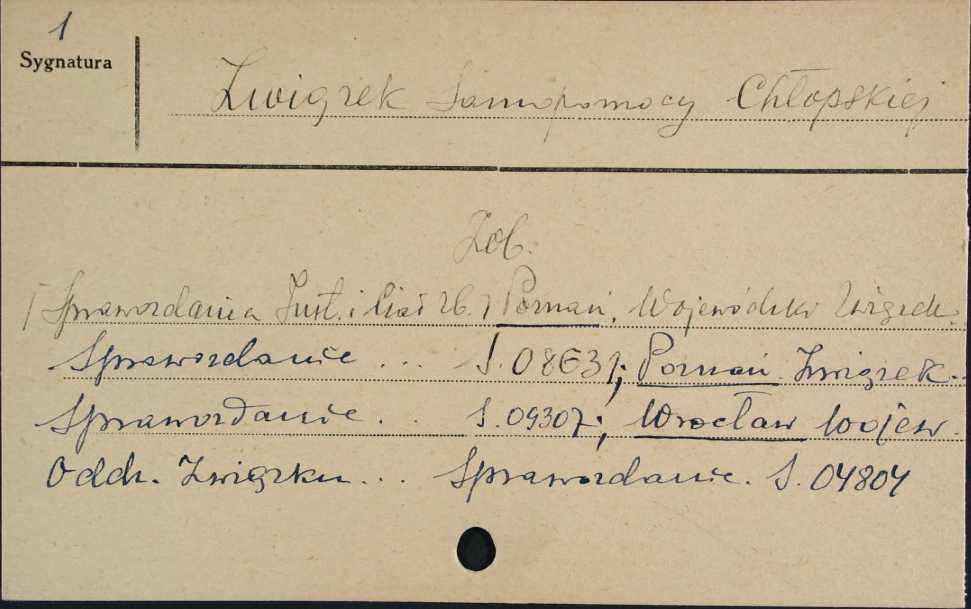 1
Sygnatura
Związek Samopomocy Chłopskiej
Zob.
[Sprawozdania Inst. i Ciał zb.] Poznań, Wojewódzki Związek.
Sprawozdanie ... S. 08631; Poznań. Związek.
Sprawozdanie. .. S. 09307; Wrocław Wojew.
Oddz. Związku... Sprawozdanie. S. 04804